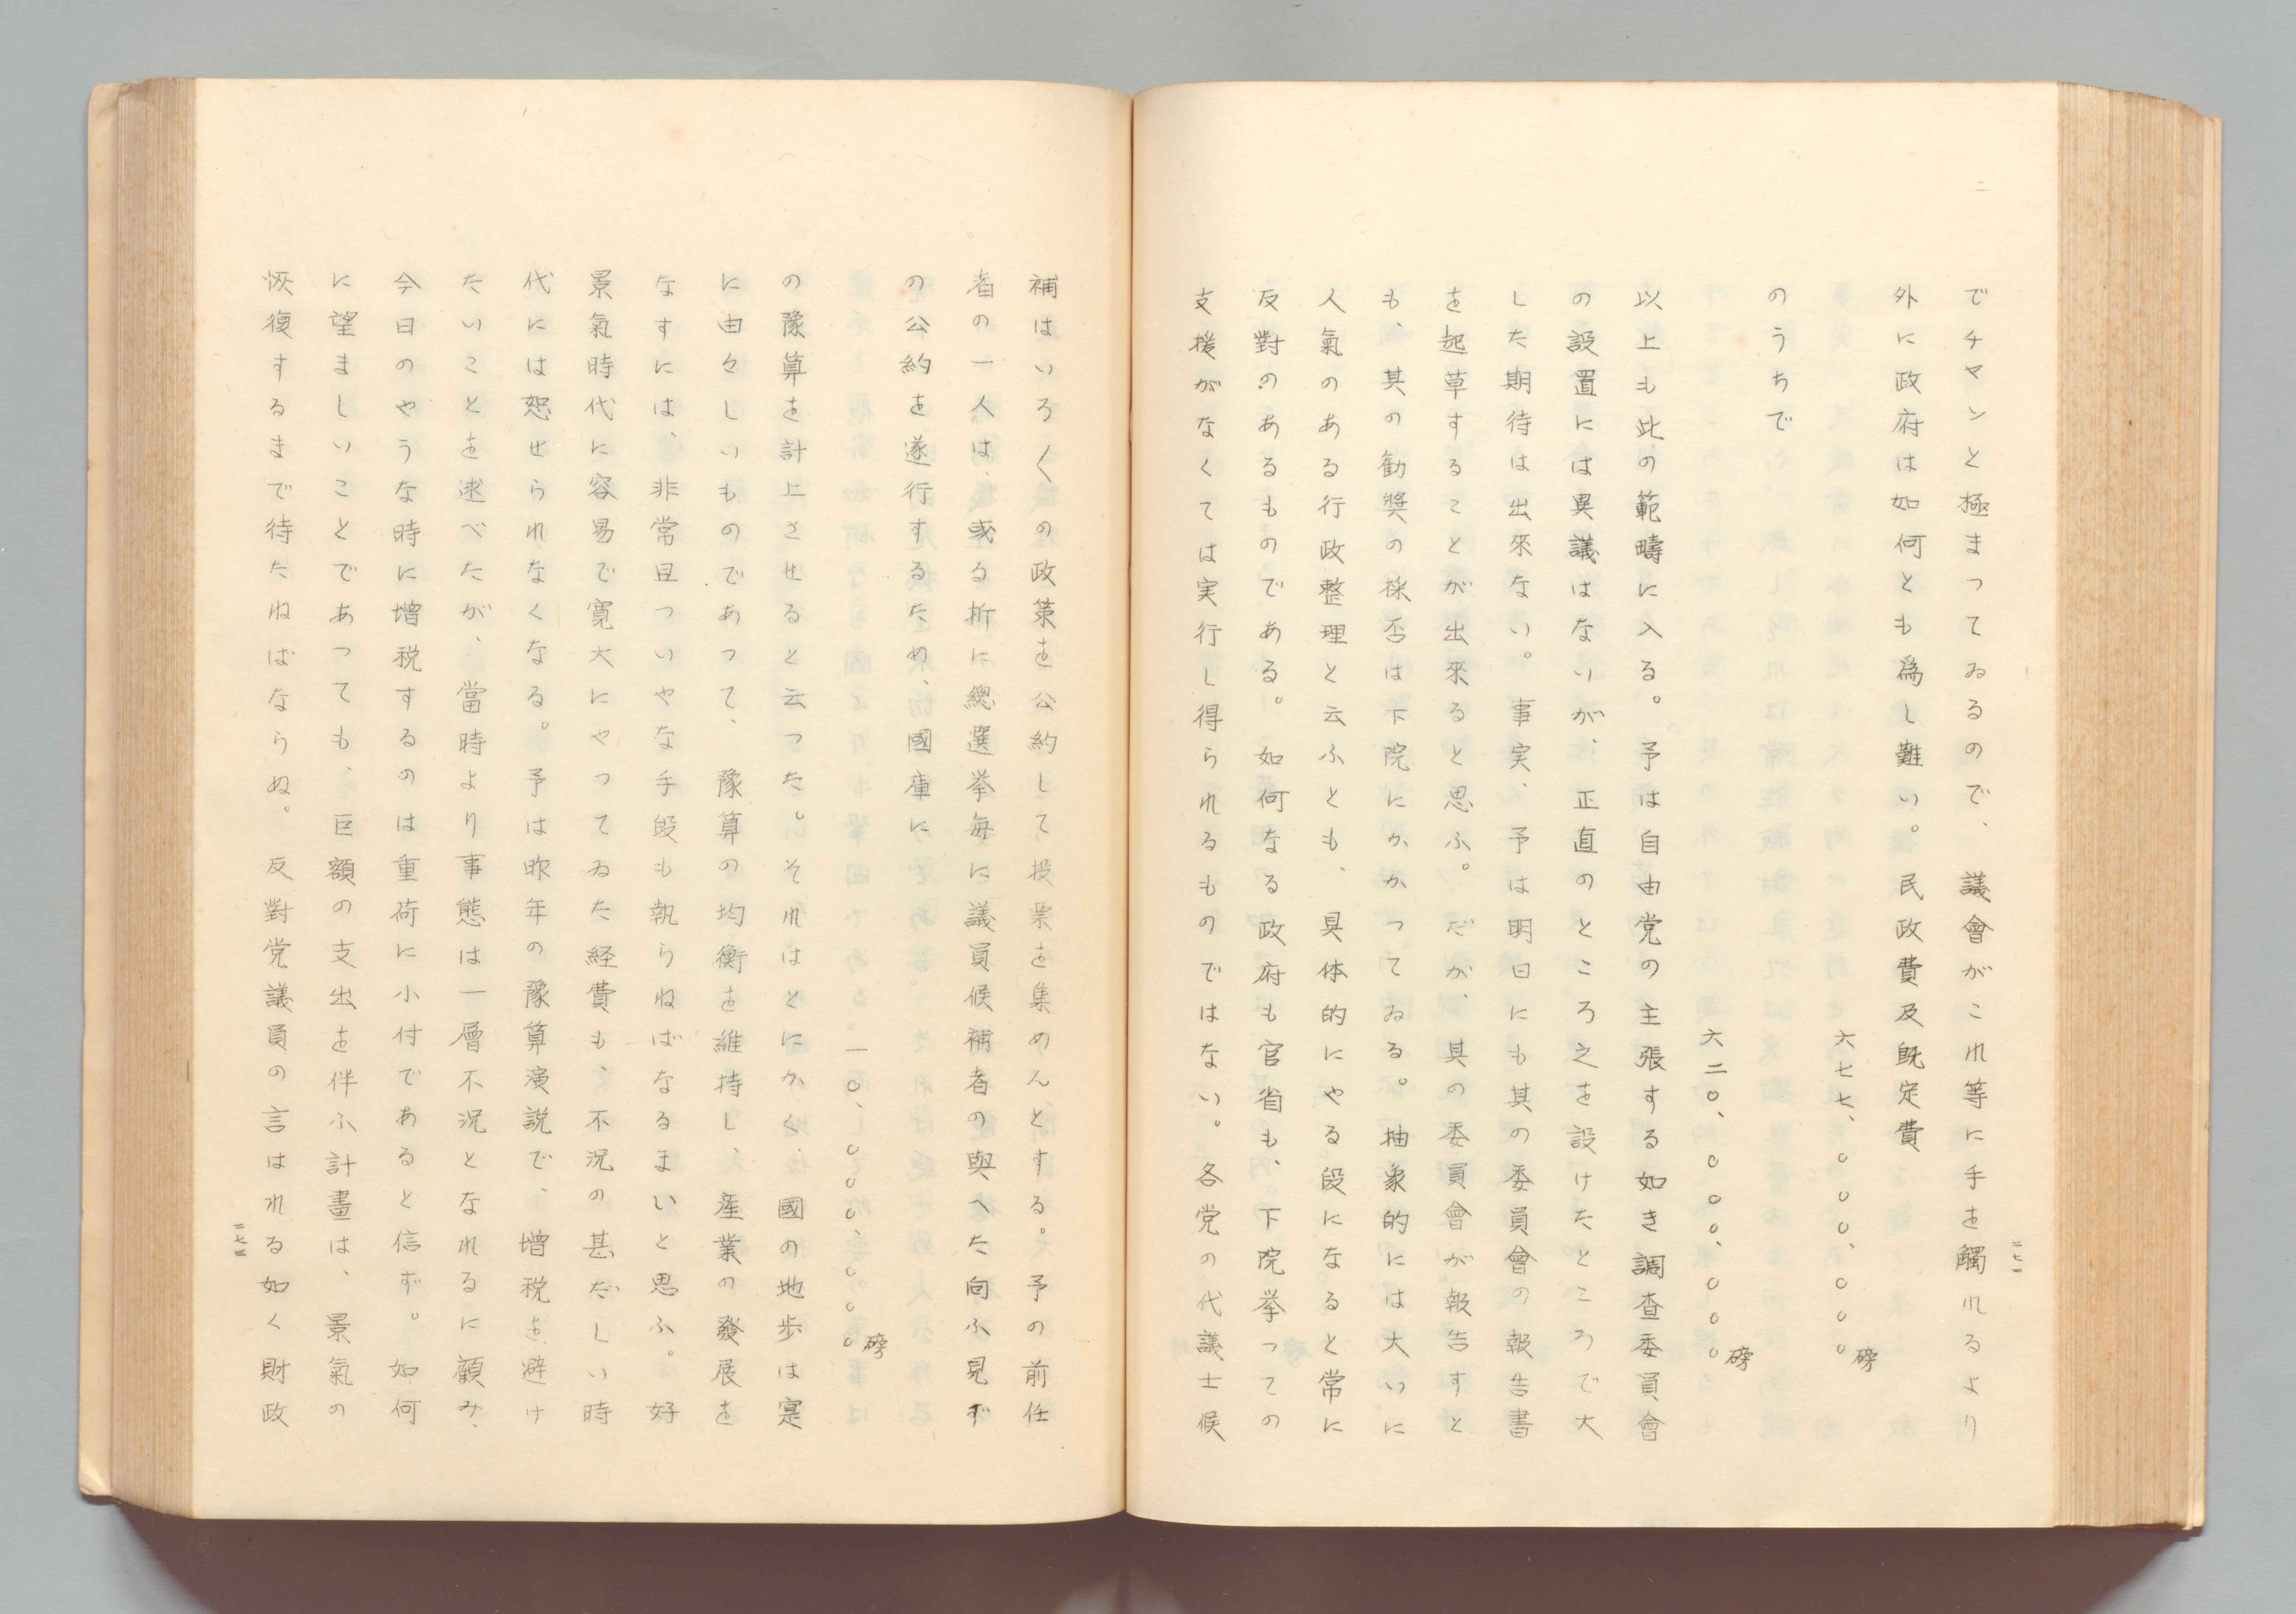 でチヤンと極まつてゐるので、議會がこれ等に手を觸れるより
外に政府は如何とも爲し難い。民政費及既定費
六七七、〇〇〇、〇〇〇磅
のうちで
六二〇、〇〇〇、〇〇〇磅
以上も此の範疇に入る。予は自由党の主張する如き調査委員會
の設置には異議はないが、正直のところ之を設けたところで大
した期待は出來ない。事実、予は明日にも其の委員會の報告書
を起草することが出來ると思ふ。だが、其の委員會が報告すと
も、其の勧奨の採否は下院にかかつてゐる。抽象的には大いに
人氣のある行政整理と云ふとも、具体的にやる段になると常に
反對のあるものである。如何なる政府も官省も、下院挙つての
支援がなくては実行し得られるものではない。各党の代議士候
二七二
補はいろ〱の政策を公約して投票を集めんとする。予の前任
者の一人は、或る折に總選挙毎に議員候補者の與へた向ふ見ず
の公約を遂行するため、國庫に
一〇、〇〇〇、〇〇〇磅
の豫算を計上させると云つた。それはとにかく、國の地歩は寔
に由々しいものであつて、豫算の均衡を維持し、産業の發展を
なすには、非常且ついやな手段も執らねばなるまいと思ふ。好
景氣時代に容易で寛大にやつてゐた経費も、不況の甚だしい時
代には恕せられなくなる。予は昨年の豫算演説で、増税を避け
たいことを述べたが、當時より事態は一層不況となれるに顧み、
今日のやうな時に増税するのは重荷に小付であると信ず。如何
に望ましいことであつても、巨額の支出を伴ふ計畫は、景氣の
恢復するまで待たねばならぬ。反對党議員の言はれる如く財政
二七三